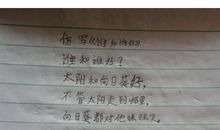 仿写《谁和谁好》
谁和谁好?
太阳和向日葵好,
不管太阳走到哪里,
向日葵都对他眯眯笑。